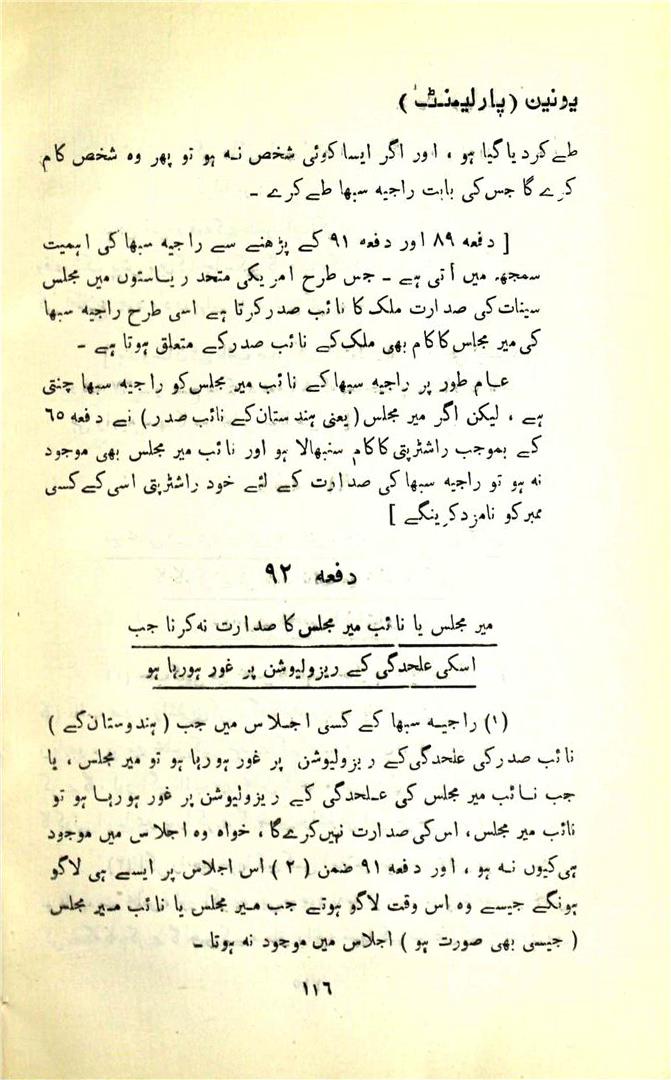 یونین (پارلیمنٹ)
طے کردیا گیا ہو ، اور اگر ایسا کوئی شخص نہ ہو تو پھر وہ شخص کام
کرے گا جس کی بابت راجیہ سبھا طے کرے ۔
[ دفعہ ۸۹ اور دفعہ ۹۱ کے پڑھنے سے راجیہ سبھا کی اہمیت
سمجھ میں آتی ہے ۔ جس طرح امریکی متحد ریاستوں میں مجلس
سینات کی صدارت ملک کا نائب صدر کرتا ہے اسی طرح راجیہ سبھا
کی میر مجلس کا کام بھی ملک کے نائب صدر کے متعلق ہوتا ہے ۔
عام طور پر راجیہ سبھا کے نائب میر مجلس کو راجیہ سبھا چنتی
ہے ، لیکن اگر میر مجلس (یعنی ہندستان کے نائب صدر) نے دفعہ ٦٥
کے بموجب راشٹرپتی کا کام سنبھالا ہو اور نائب میر مجلس بھی موجود
نہ ہو تو راجیہ سبھا کی صدارت کے لئے خود راشٹرپتی اسی کے کسی
ممبر کو نامزد کرینگے ]
دفعہ ۹۲
میر مجلس یا نائب میر مجلس کا صدارت نہ کرنا جب
اسکی علحدگی کے ریزولیوشن پر غور ہورہا ہو
(۱) راجیہ سبھا کے کسی اجلاس میں جب (ہندوستان کے )
نائب صدر کی علحدگی کے ریزولیوشن پر غور ہورہا ہو تو میر مجلس ، یا
جب نائب میر مجلس کی علحدگی کے ریزولیوشن پر غور ہورہا ہو تو
نائب میر مجلس، اس کی صدارت نہیں کرے گا ، خواہ وہ اجلاس میں موجود
ہی کیوں نہ ہو ، اور دفعہ ۹۱ ضمن (۲) اس اجلاس پر ایسے ہی لاگو
ہونگے جیسے وہ اس وقت لاگو ہوتے جب میر مجلس یا نائب میر مجلس
( جیسی بھی صورت ہو ) اجلاس میں موجود نہ ہوتا ۔
۱۱٦